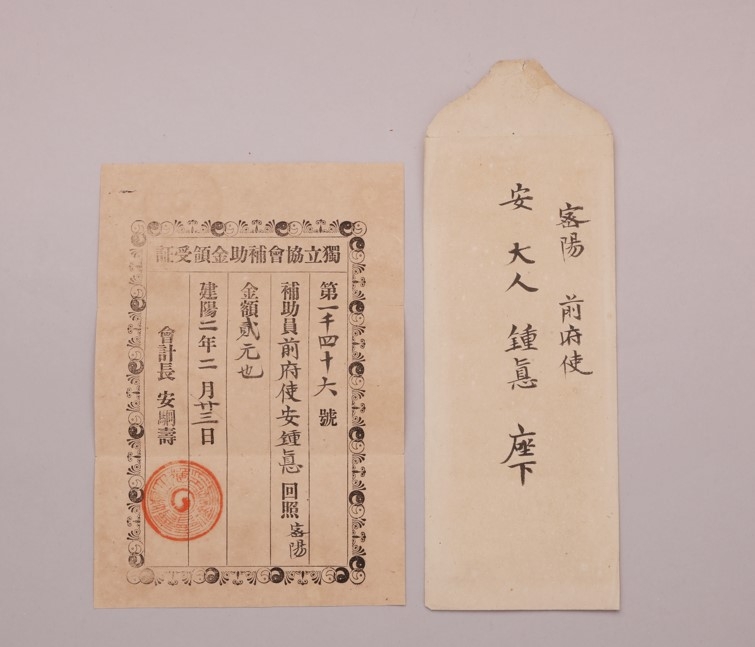 獨立協會補助金領受証
第一千四十六號
補助員前府使安鍾悳回照 密陽
金額貳元也
建陽二年二月廿三日
會計長 安駉壽
密陽 前府使
安大人鍾悳 座下